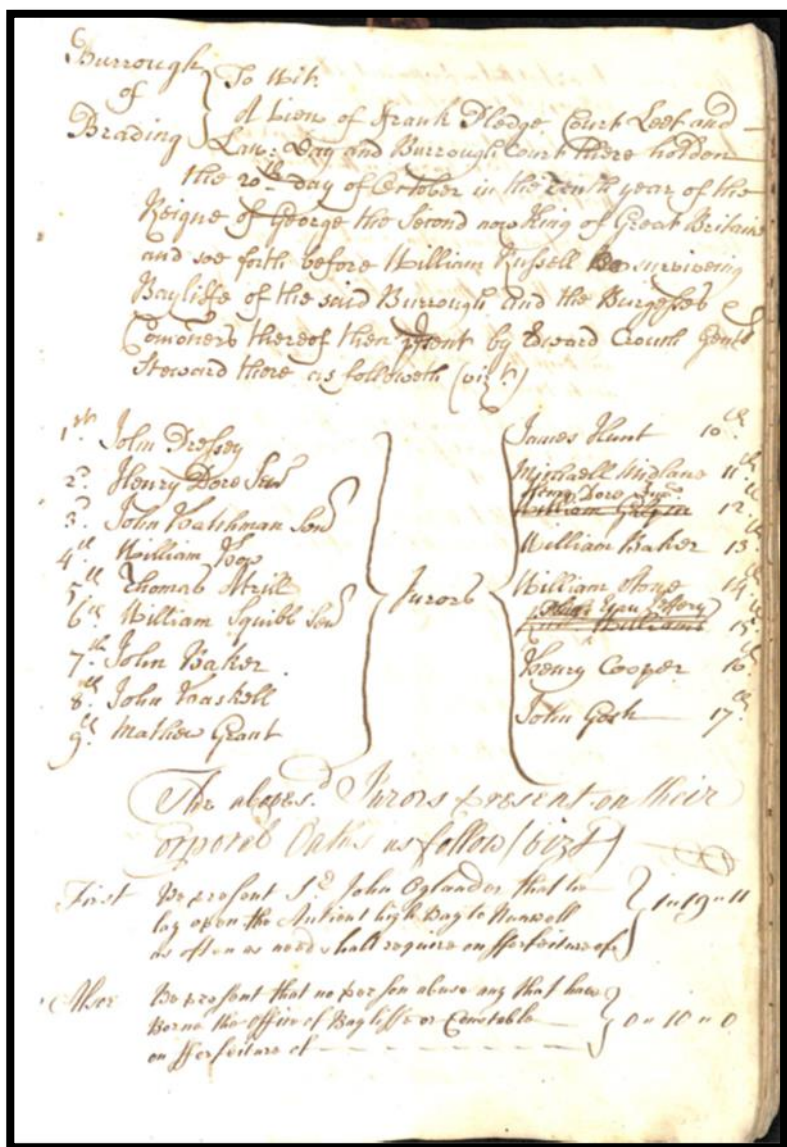 Burrough
of
Brading
To Wit.
A View of Frank Pledge Court Leet and
Law: Day and Burrough Court there holden
the 20th day of October in the Tenth year of the
Reigne of George the Second now King of Great Britaine
and soe forth before William Russell surviveing
Bayliffe of the said Burrough and the Burgesses &
Comoners thereof then psent by Edward Crouch Gent
Steward there as followeth (vizt.)
1st. John Dressey
2d. Henry Dore Senr
3d. John Hatchman Senr
4th William How
5th Thomas
6th William Squibb Senr
7th. John Baker
8th. John Haskell
9th. Mathew Grant
Jurors
James Hunt 10th.
Michaell Midlane 11th.
Henry Dore Junr.
William 12th.
William Baker 13th.
William Stone 14th.
Williams 15th.
Henry Cooper 16th.
John Gosh 17th.
The aboves.d Jurors present on their
orporal Oaths as follow (vizt)
First We present Sr. John Oglander that he
lay open the Antient high Way to Nunwell
as often as need shall require on fforfeiture of
1 " 19 " 11
Alsoe We present that no person abuse any that have
Borne the Office of Bayliffe or Constable
on fforfeiture of
0 " 10 " 0